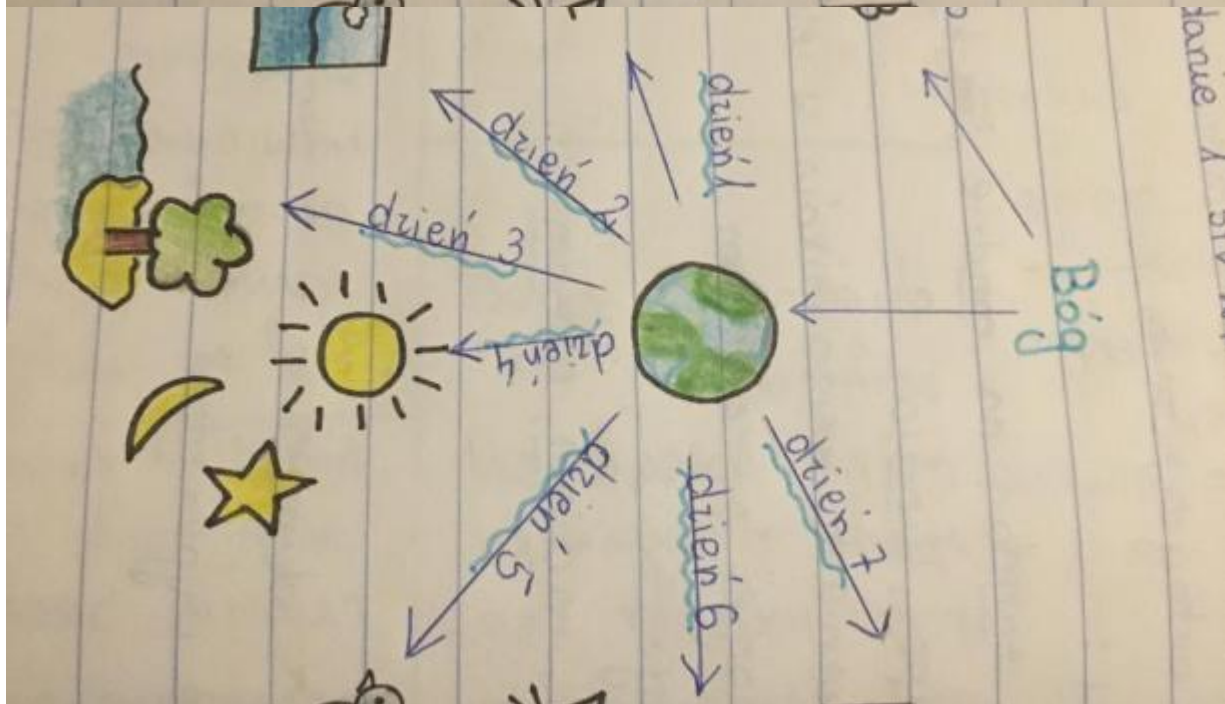 Bóg
dzień 1
dzień 2
dzień 3
dzień 4
dzień 5
dzień 6
dzień 7